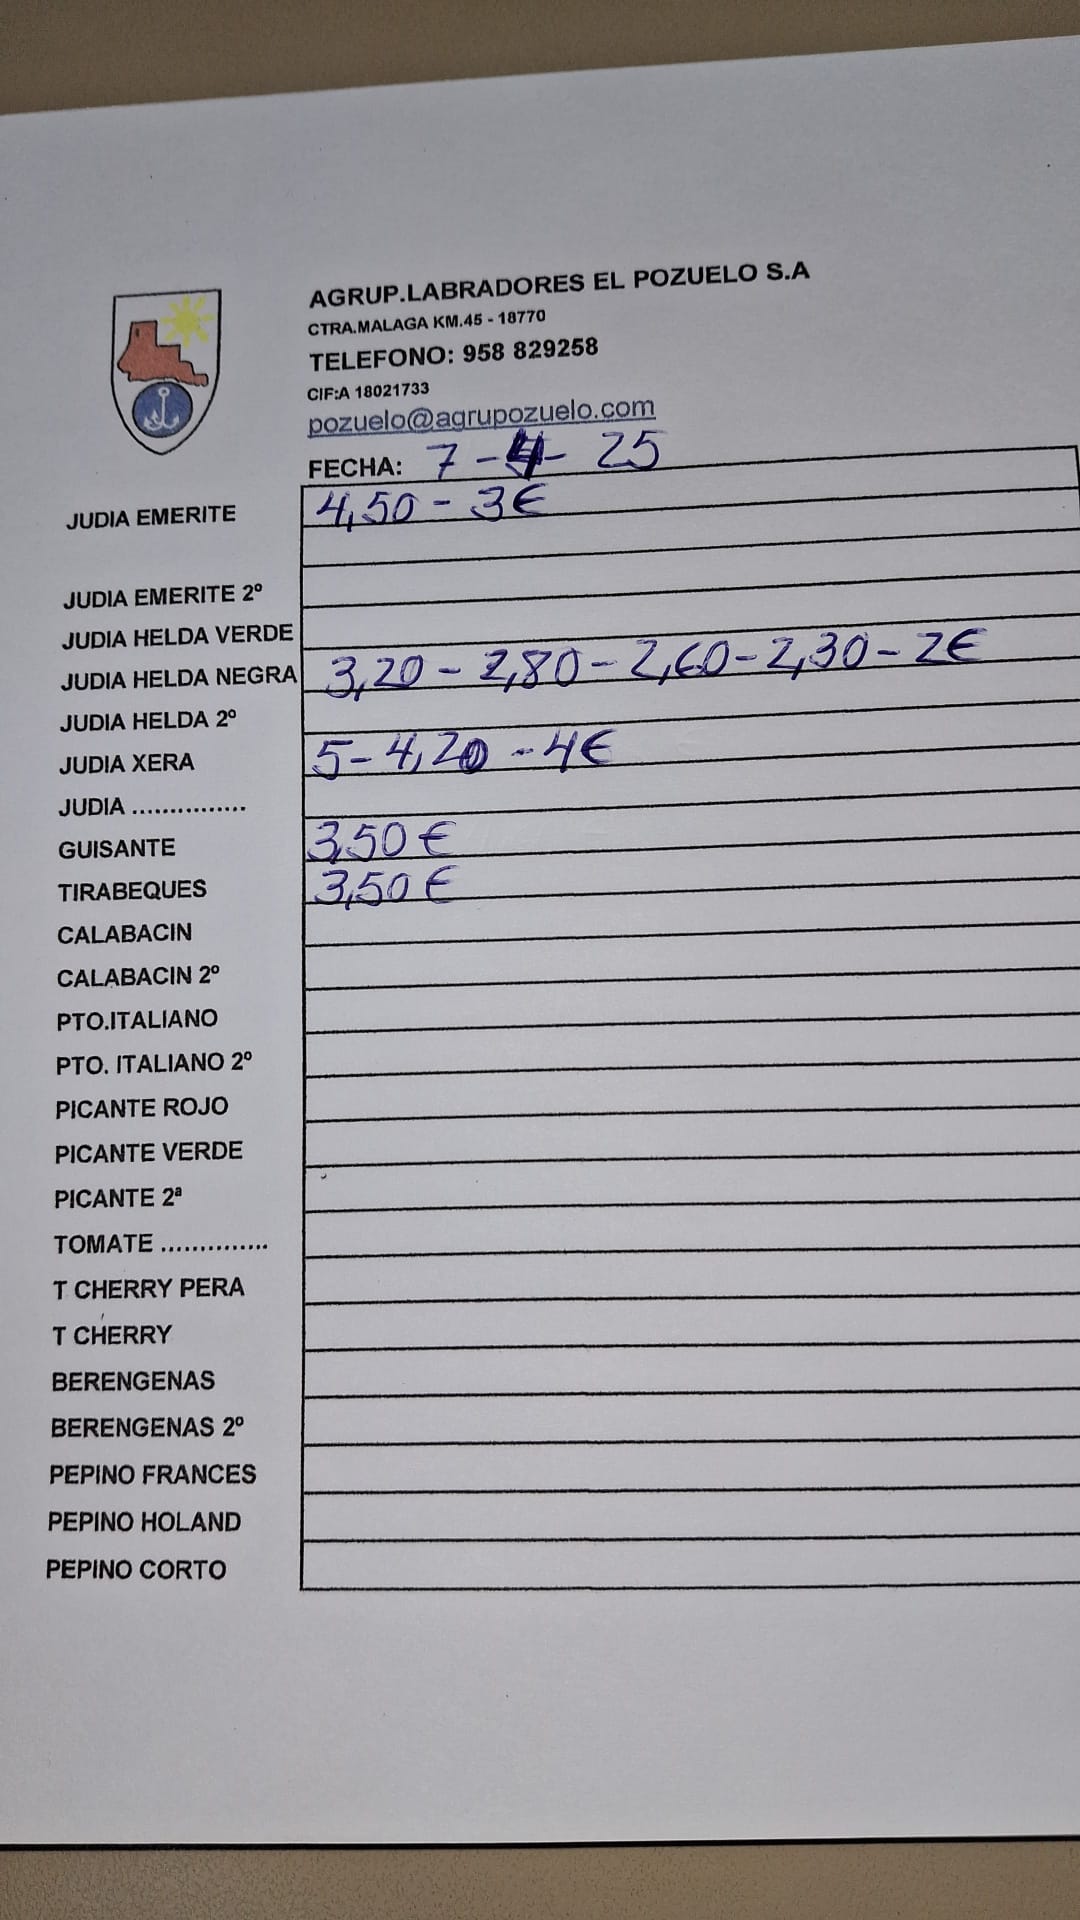 AGRUP.LABRADORES EL POZUELO S.A
CTRA.MALAGA KM.45 - 18770
TELEFONO: 958 829258
CIF:A 18021733
pozuelo@agrupozuelo.com
FECHA: 7-4-25
JUDIA EMERITE 4,50 - 3€
JUDIA EMERITE 2º
JUDIA HELDA VERDE
JUDIA HELDA NEGRA 3,20 - 2,80 - 2,60 - 2,30 - 2€
JUDIA HELDA 2º
JUDIA XERA 5 - 4,20 - 4€
JUDIA ...............
GUISANTE 3,50 €
TIRABEQUES 3,50 €
CALABACIN
CALABACIN 2º
PTO.ITALIANO
PTO. ITALIANO 2º
PICANTE ROJO
PICANTE VERDE
PICANTE 2ª
TOMATE ..............
T CHERRY PERA
T CHERRY
BERENGENAS
BERENGENAS 2º
PEPINO FRANCES
PEPINO HOLAND
PEPINO CORTO